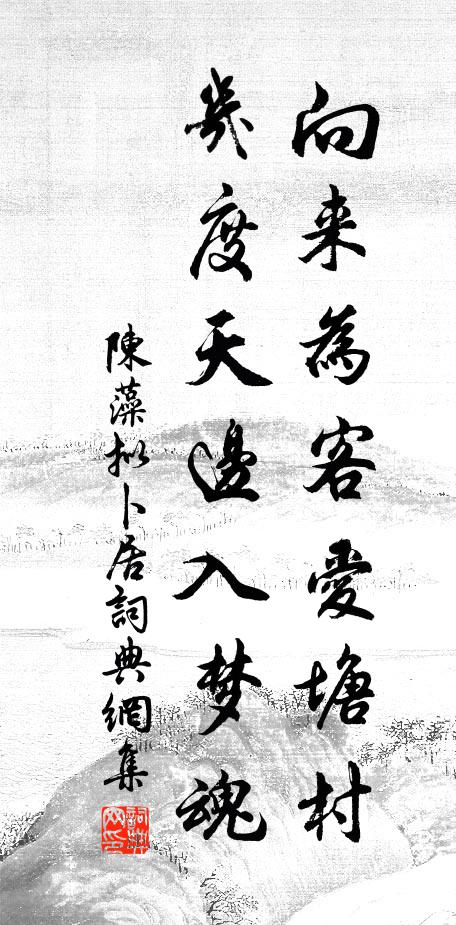 向来為客愛塘村
幾度天邊入梦魂
陳藻拟卜居詞典網集